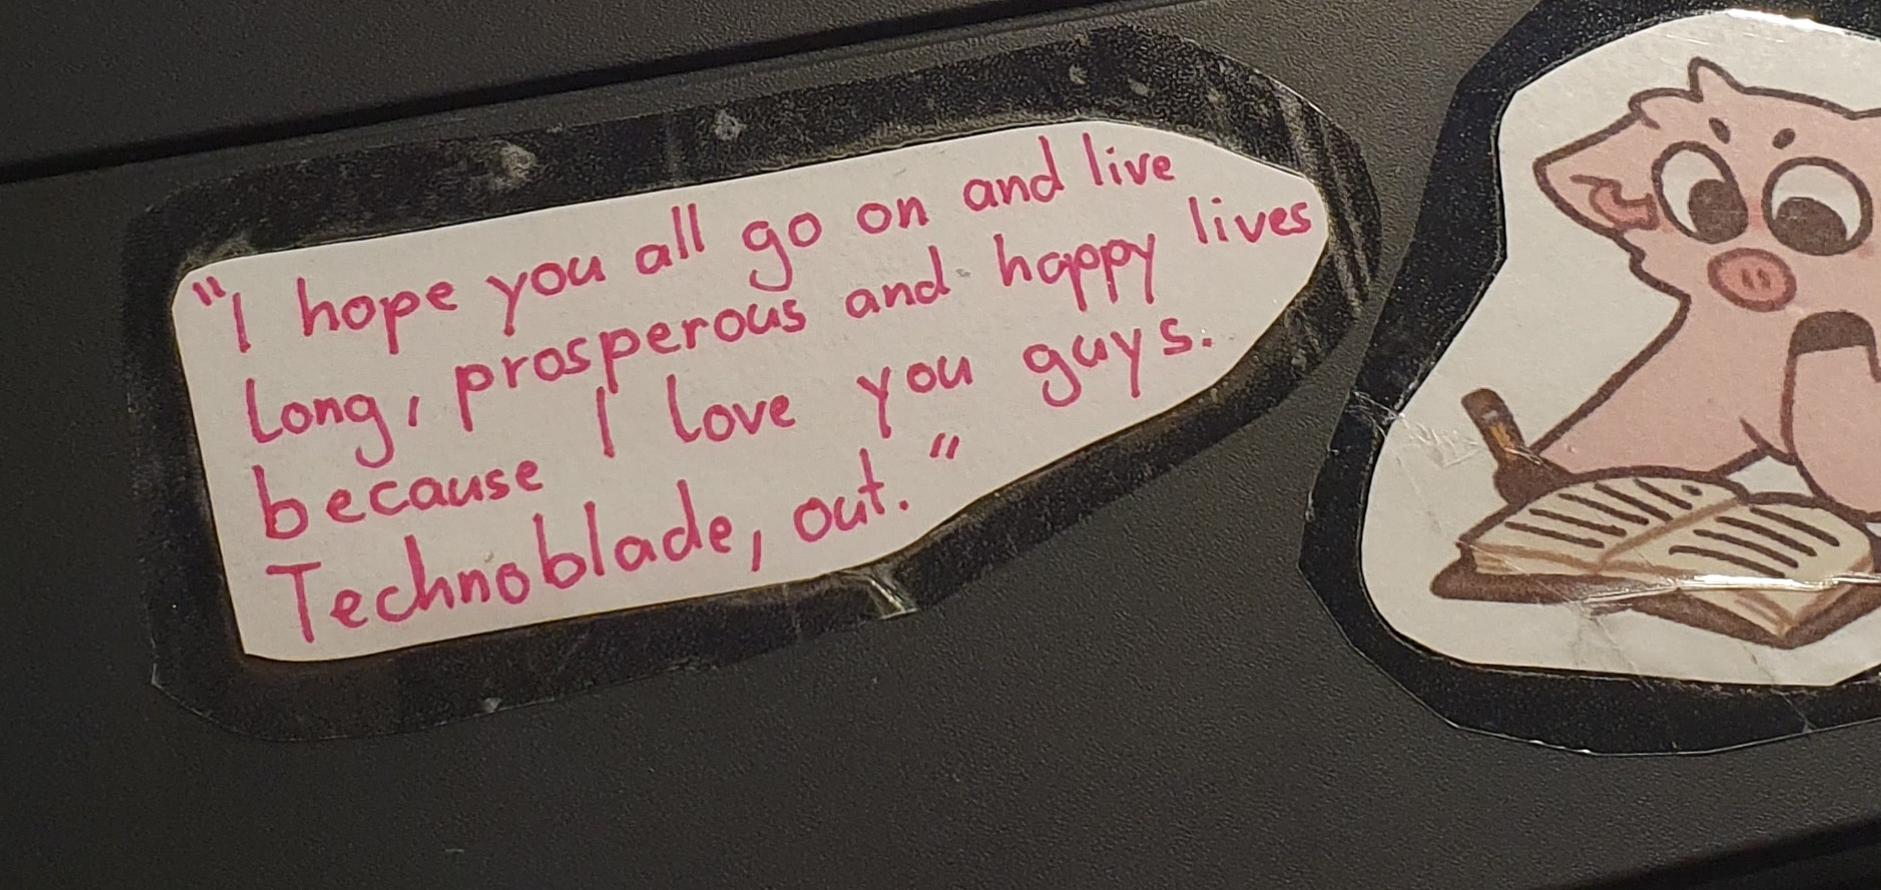 "I hope you all go on and live
Long, prosperous and happy lives
because I love you guys.
Technoblade, out."